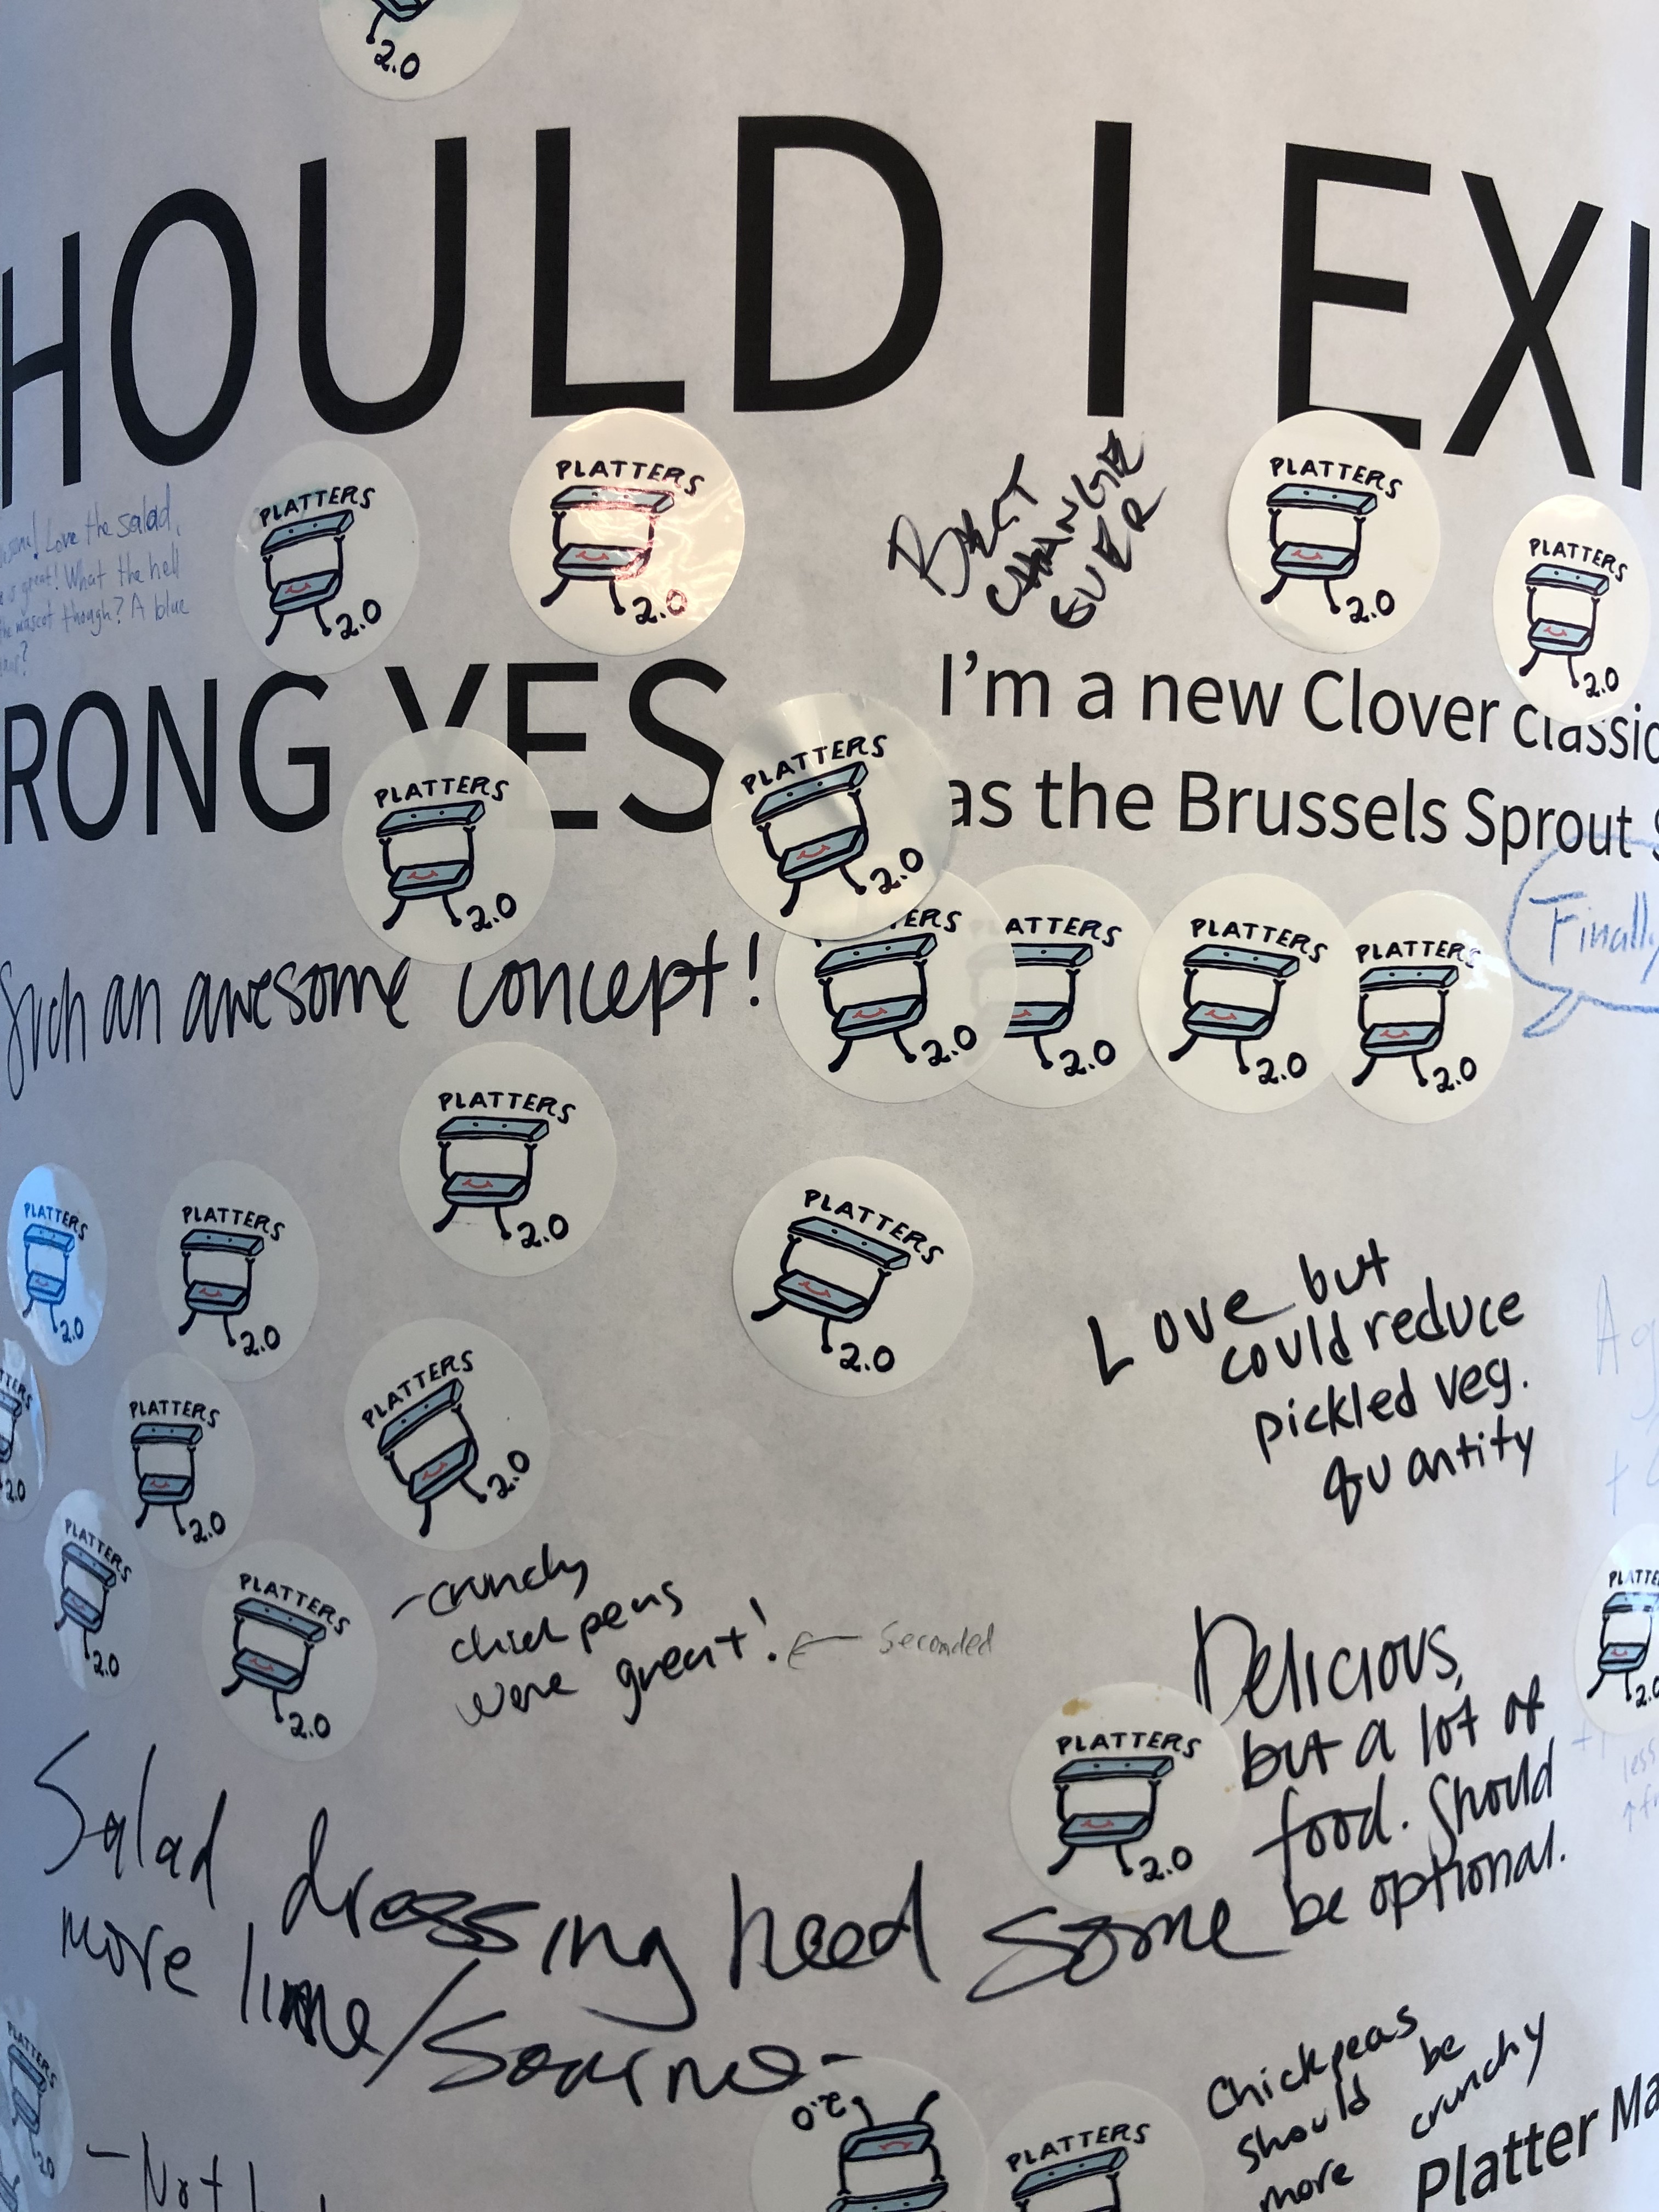 2.0
HOULD I EXI
PLATTERS
2.0
PLATTERS
2.0
BEST
CHANGE
EVER
PLATTERS
2.0
PLATTERS
2.0
Love the salad,
great! What the hell
the mascot though? A blue
RONG YES
I'm a new Clover classic
as the Brussels Sprout
PLATTERS
2.0
PLATTERS
2.0
Such an awesome concept!
ERS
2.0
ATTERS
2.0
PLATTERS
2.0
PLATTERS
2.0
Finally
PLATTERS
2.0
PLATTERS
2.0
PLATTERS
2.0
PLATTERS
2.0
Love but
could reduce
pickled veg.
quantity
TTERS
2.0
PLATTERS
2.0
PLATTERS
2.0
PLATTERS
2.0
PLATTERS
2.0
-crunchy
chickpeas
were great! ← Seconded
PLATTE
2.0
Delicious,
but a lot of
food. Should
be optional.
PLATTERS
2.0
Salad dressing need some
more lime/sourne-
PLATTERS
2.0
2.0
PLATTERS
Chickpeas
should be
more crunchy
-Not
Platter Ma